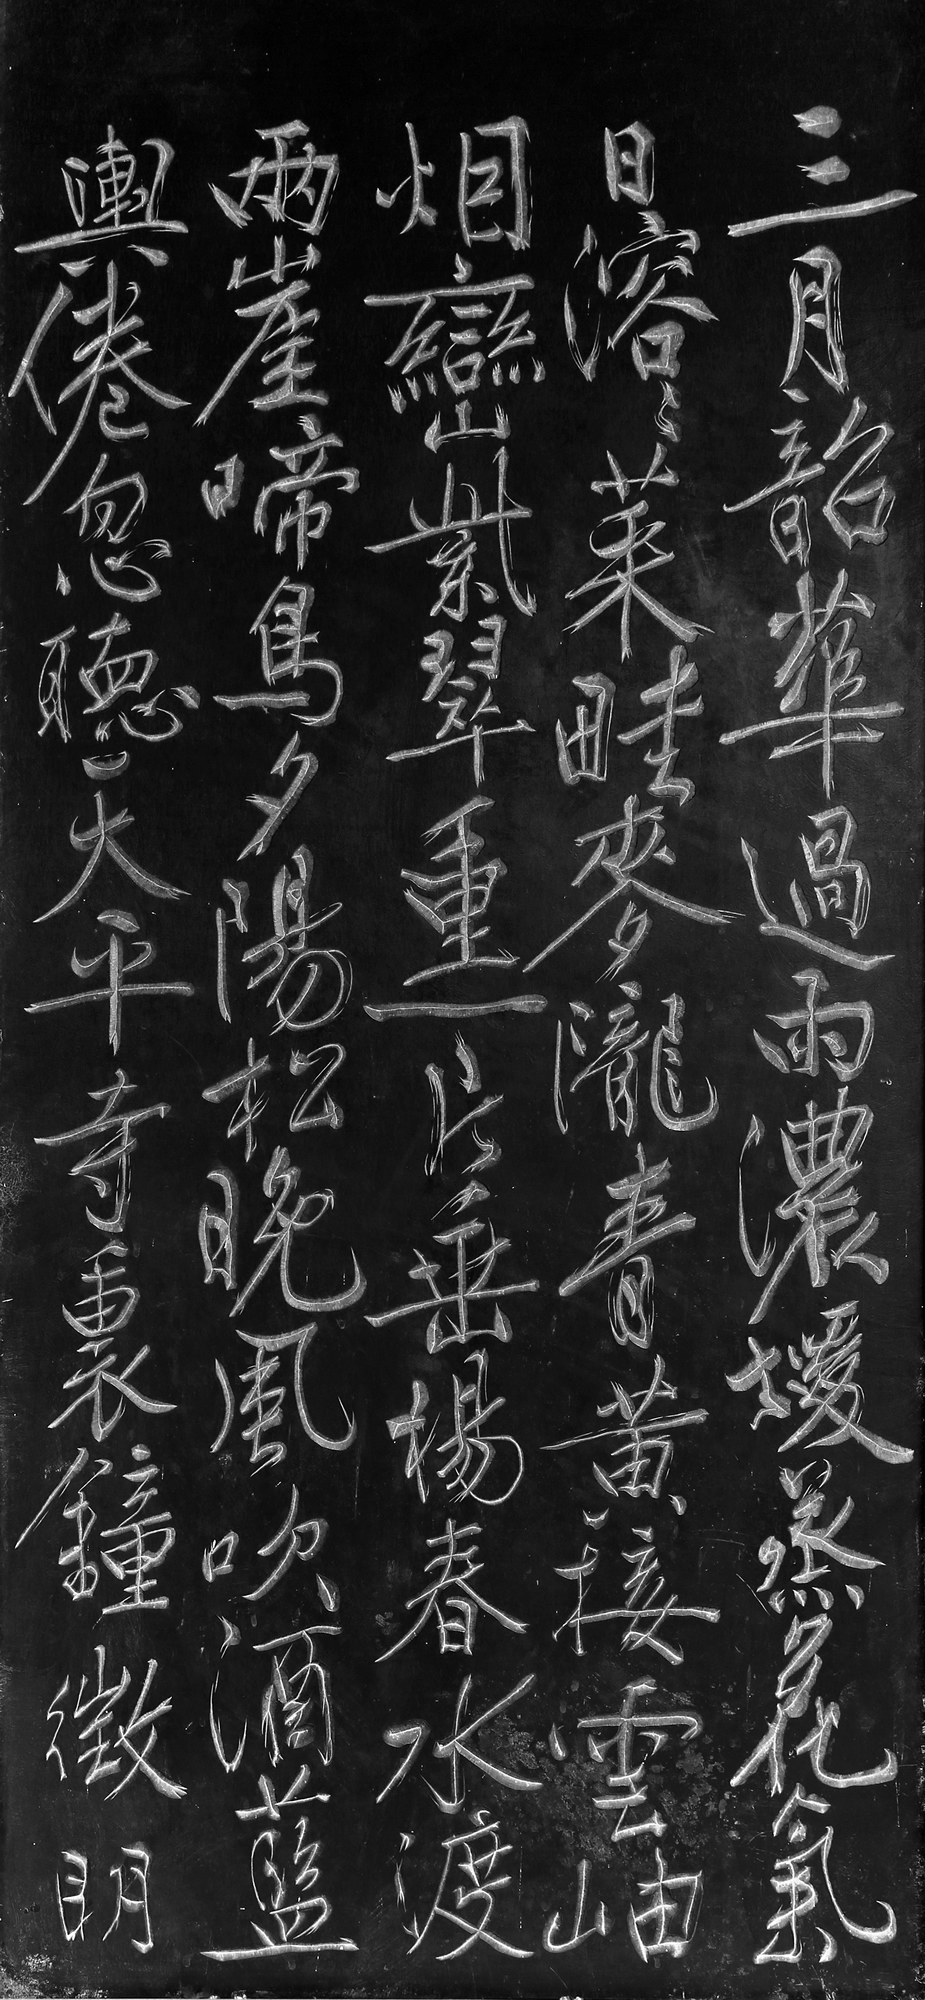 三月韶華過雨濃煖蒸花氣
日溶〻菜畦麥隴青黃接雲岫
烟巒紫翠重一片垂楊春水渡
兩崖啼鳥夕陽松晚風吹酒藍
輿倦忽聽天平寺裏鐘 徵明